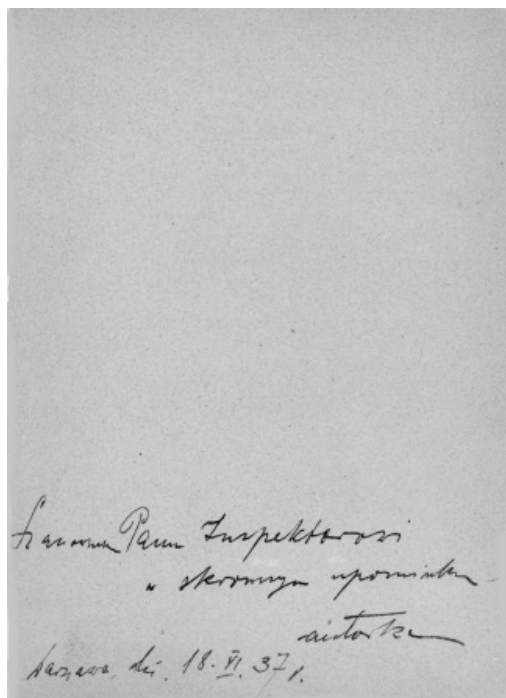 Szanownemu Panu Inspektorowi
w skromnym upominku
autorka
Warszawa, dn. 18. VI. 37 r.